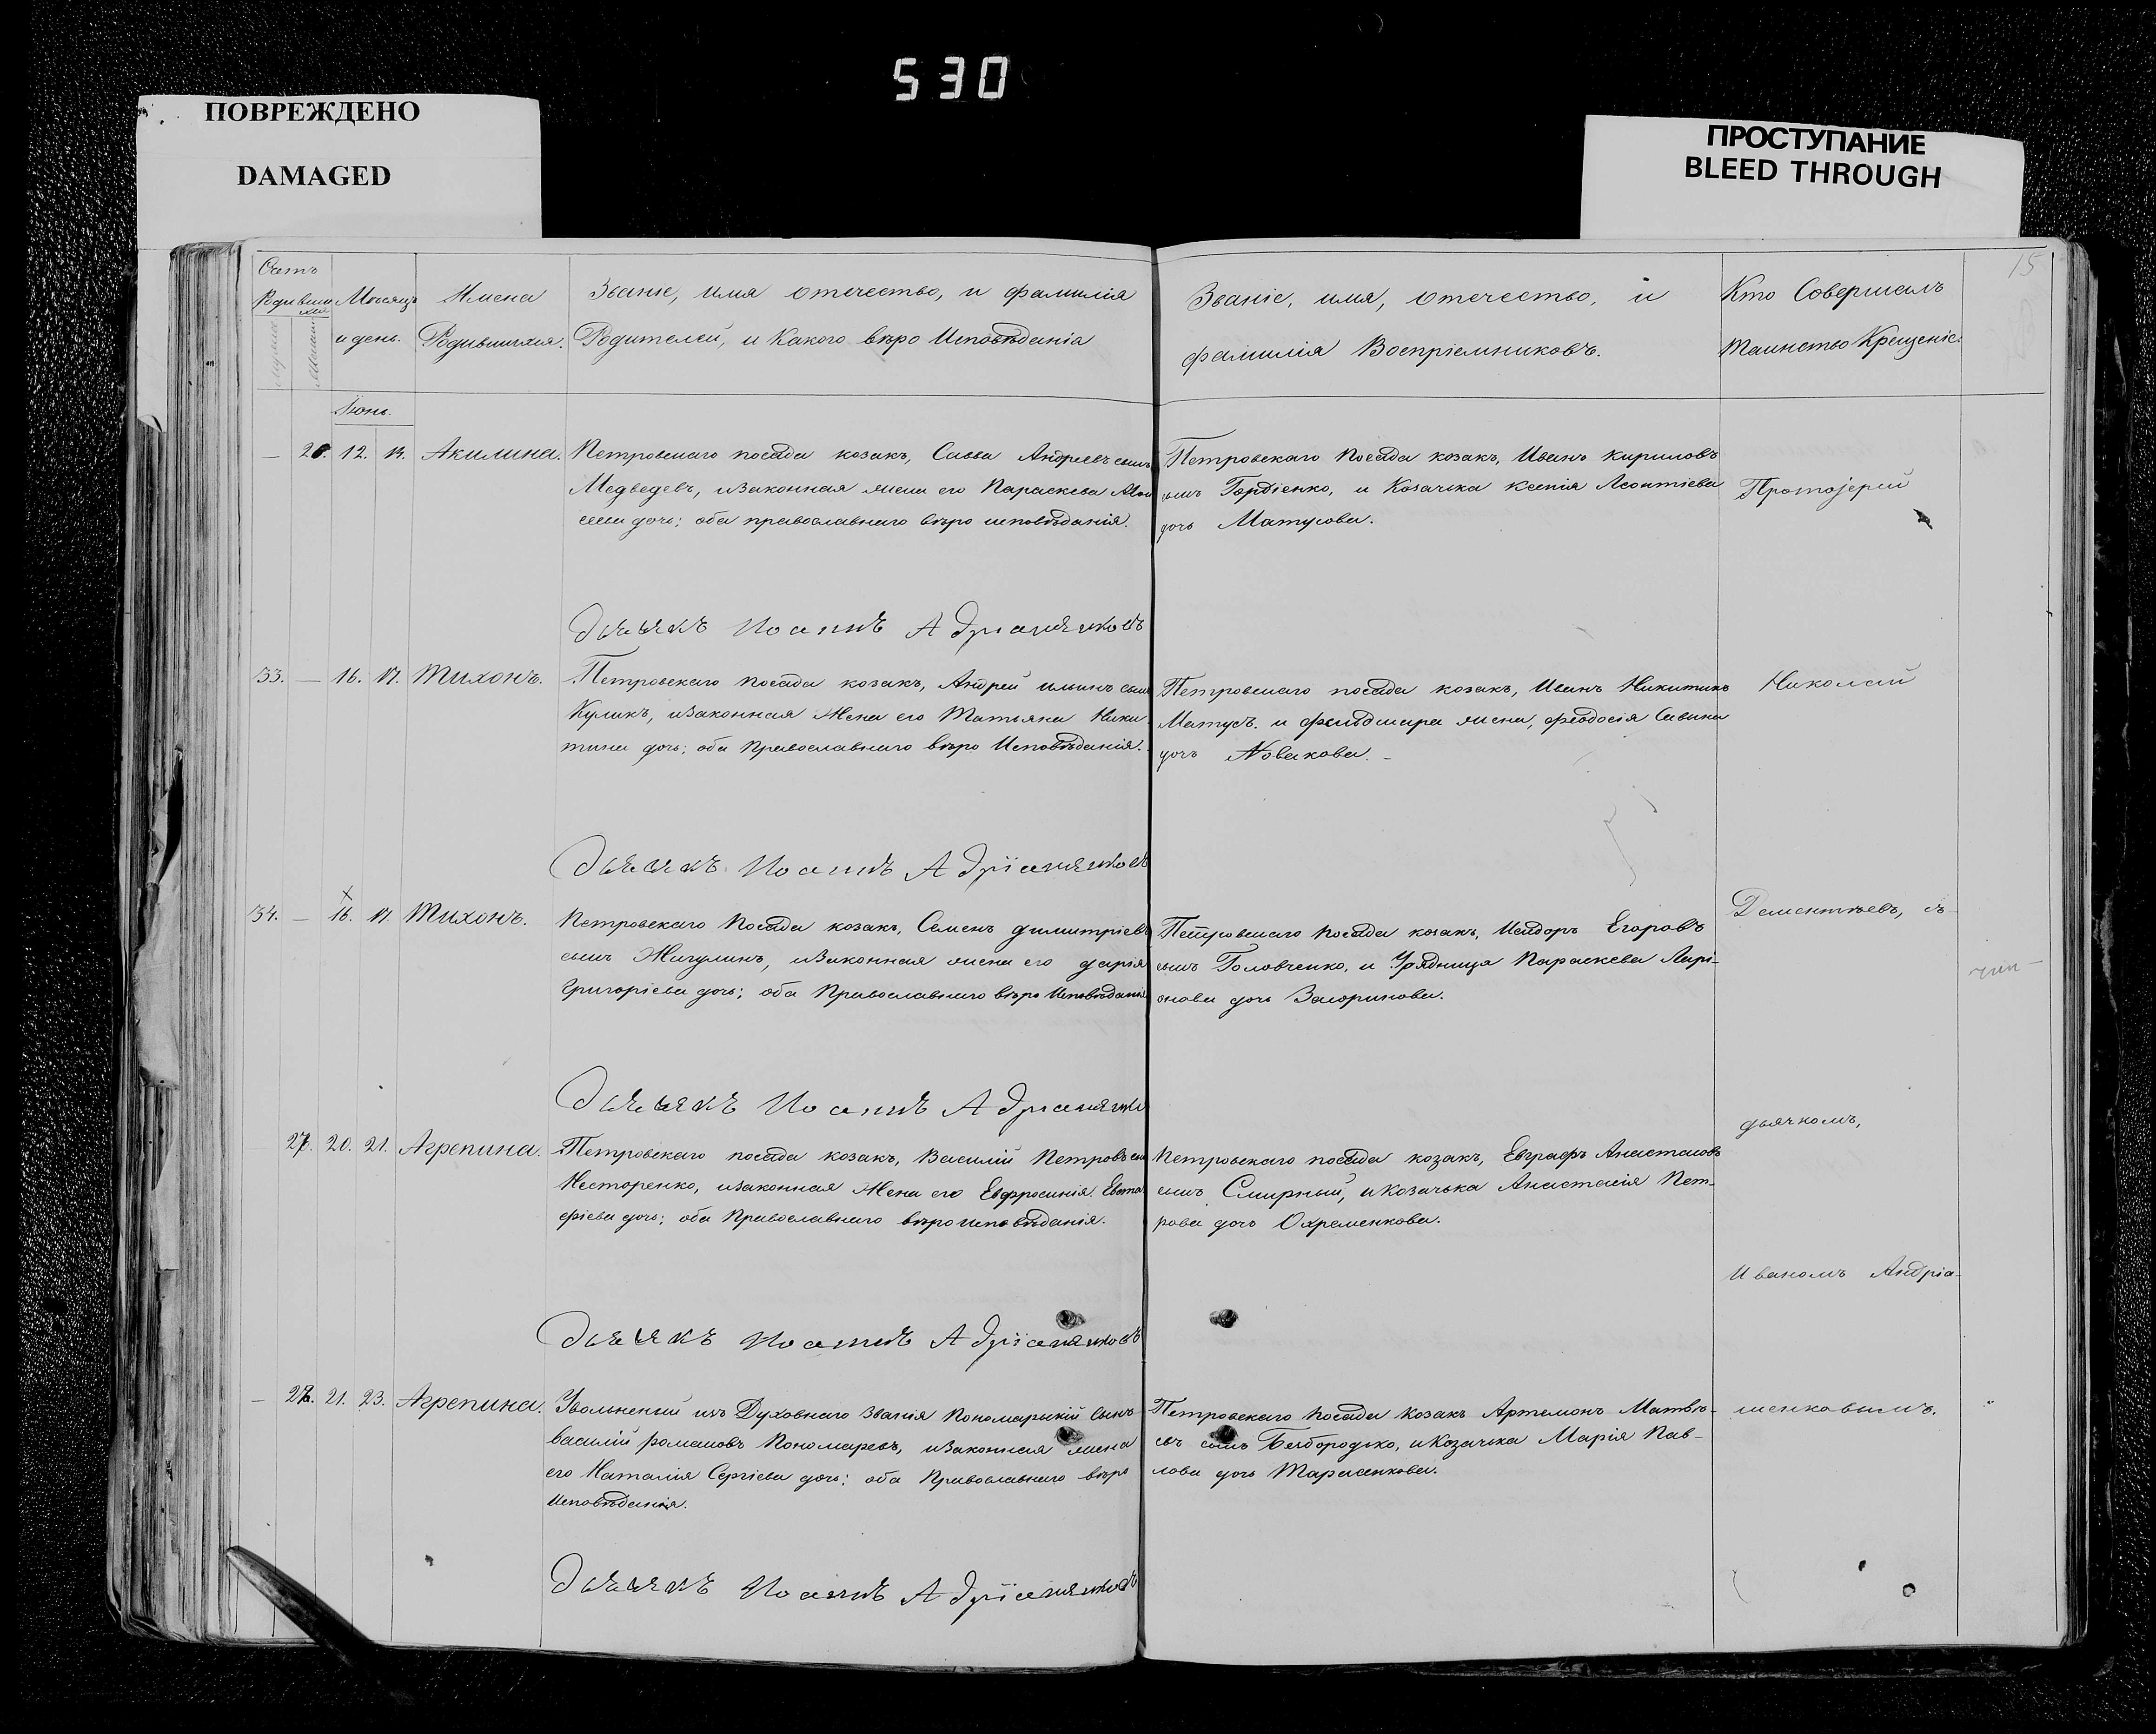 530
ПОВРЕЖДЕНО
DAMAGED
ПРОСТУПАНИЕ
BLEED THROUGH
15
Счетъ
Родивши
хся
Мѣсяцъ
и день.
Имена
Родившихся.
Званіе, имя отечество, и фамилія
Родителей, и Какого вѣро Исповѣданія
Званіе, имя, отечество, и
фамилія Воспріемниковъ.
Кто Совершалъ
таинство Крещеніе.
Іюнь.
— 26. 12. 14. Акилина.
Петровскаго посада козакъ, Савва Андреевъ сынъ
Медведевъ, изаконная жена его Параскева
дочь; оба православнаго вѣро исповѣданія.
Петровскаго посада козакъ, Иванъ Кириловъ
сынъ Гордіенко, и Козачька Ксенія Леонтіева
дочь Матусова.
Протоіерей
дьячекъ Иоаннъ
33. — 16. 17. Тихонъ.
Петровскаго посада козакъ, Андрей ильинъ сынъ
Куликъ, изаконная Жена его Татьяна Ники
тина дочь; оба Православнаго вѣро Исповѣданія.
Петровскаго посада козакъ, Иванъ Никитинъ
Матусъ. и фелдшера жена, феодосія Савина
дочь Новакова. –
Николай
дьячекъ Иоаннъ
34. — 16. 17. Тихонъ.
Петровскаго Посада козакъ, Семенъ димитріевъ
сынъ Жигулинъ, изаконная жена его дарія
Григоріева дочь; оба Православнаго вѣро Исповѣданія
Петровскаго посада козакъ, Исидоръ Егоровъ
сынъ Головченко, и Урядница Параскева Ларі-
онова дочь
Дементьевъ, съ
дьячекъ Иоаннъ
27. 20. 21. Агрепина.
Петровскаго посада козакъ, Василій Петровъ сын
Несторенко, изаконная Жена его Евфросинія Евста
фіева дочь; оба Православнаго вѣро исповѣданія.
Петровскаго посада козакъ, Евграфъ Анастасовъ
сынъ Смирный, и козачька Анастасія Пет-
рова дочь Охременкова.
дьячкомъ,
Иваномъ Андріа-
дьячекъ Иоаннъ
— 28. 21. 23. Агрепина.
Увольненый изъ Духовнаго Званія Сынъ
василій романовъ Пономаревъ, изаконная жена
его Наталія Сергіева дочь: оба Православнаго вѣро
Исповѣданія.
Петровскаго посада Козакъ Артемонъ Матвѣ-
евъ сынъ Безбородько, и Козачька Марія Пав-
лова дочь Тарасенкова.
шенковымъ.
дьячекъ Иоаннъ